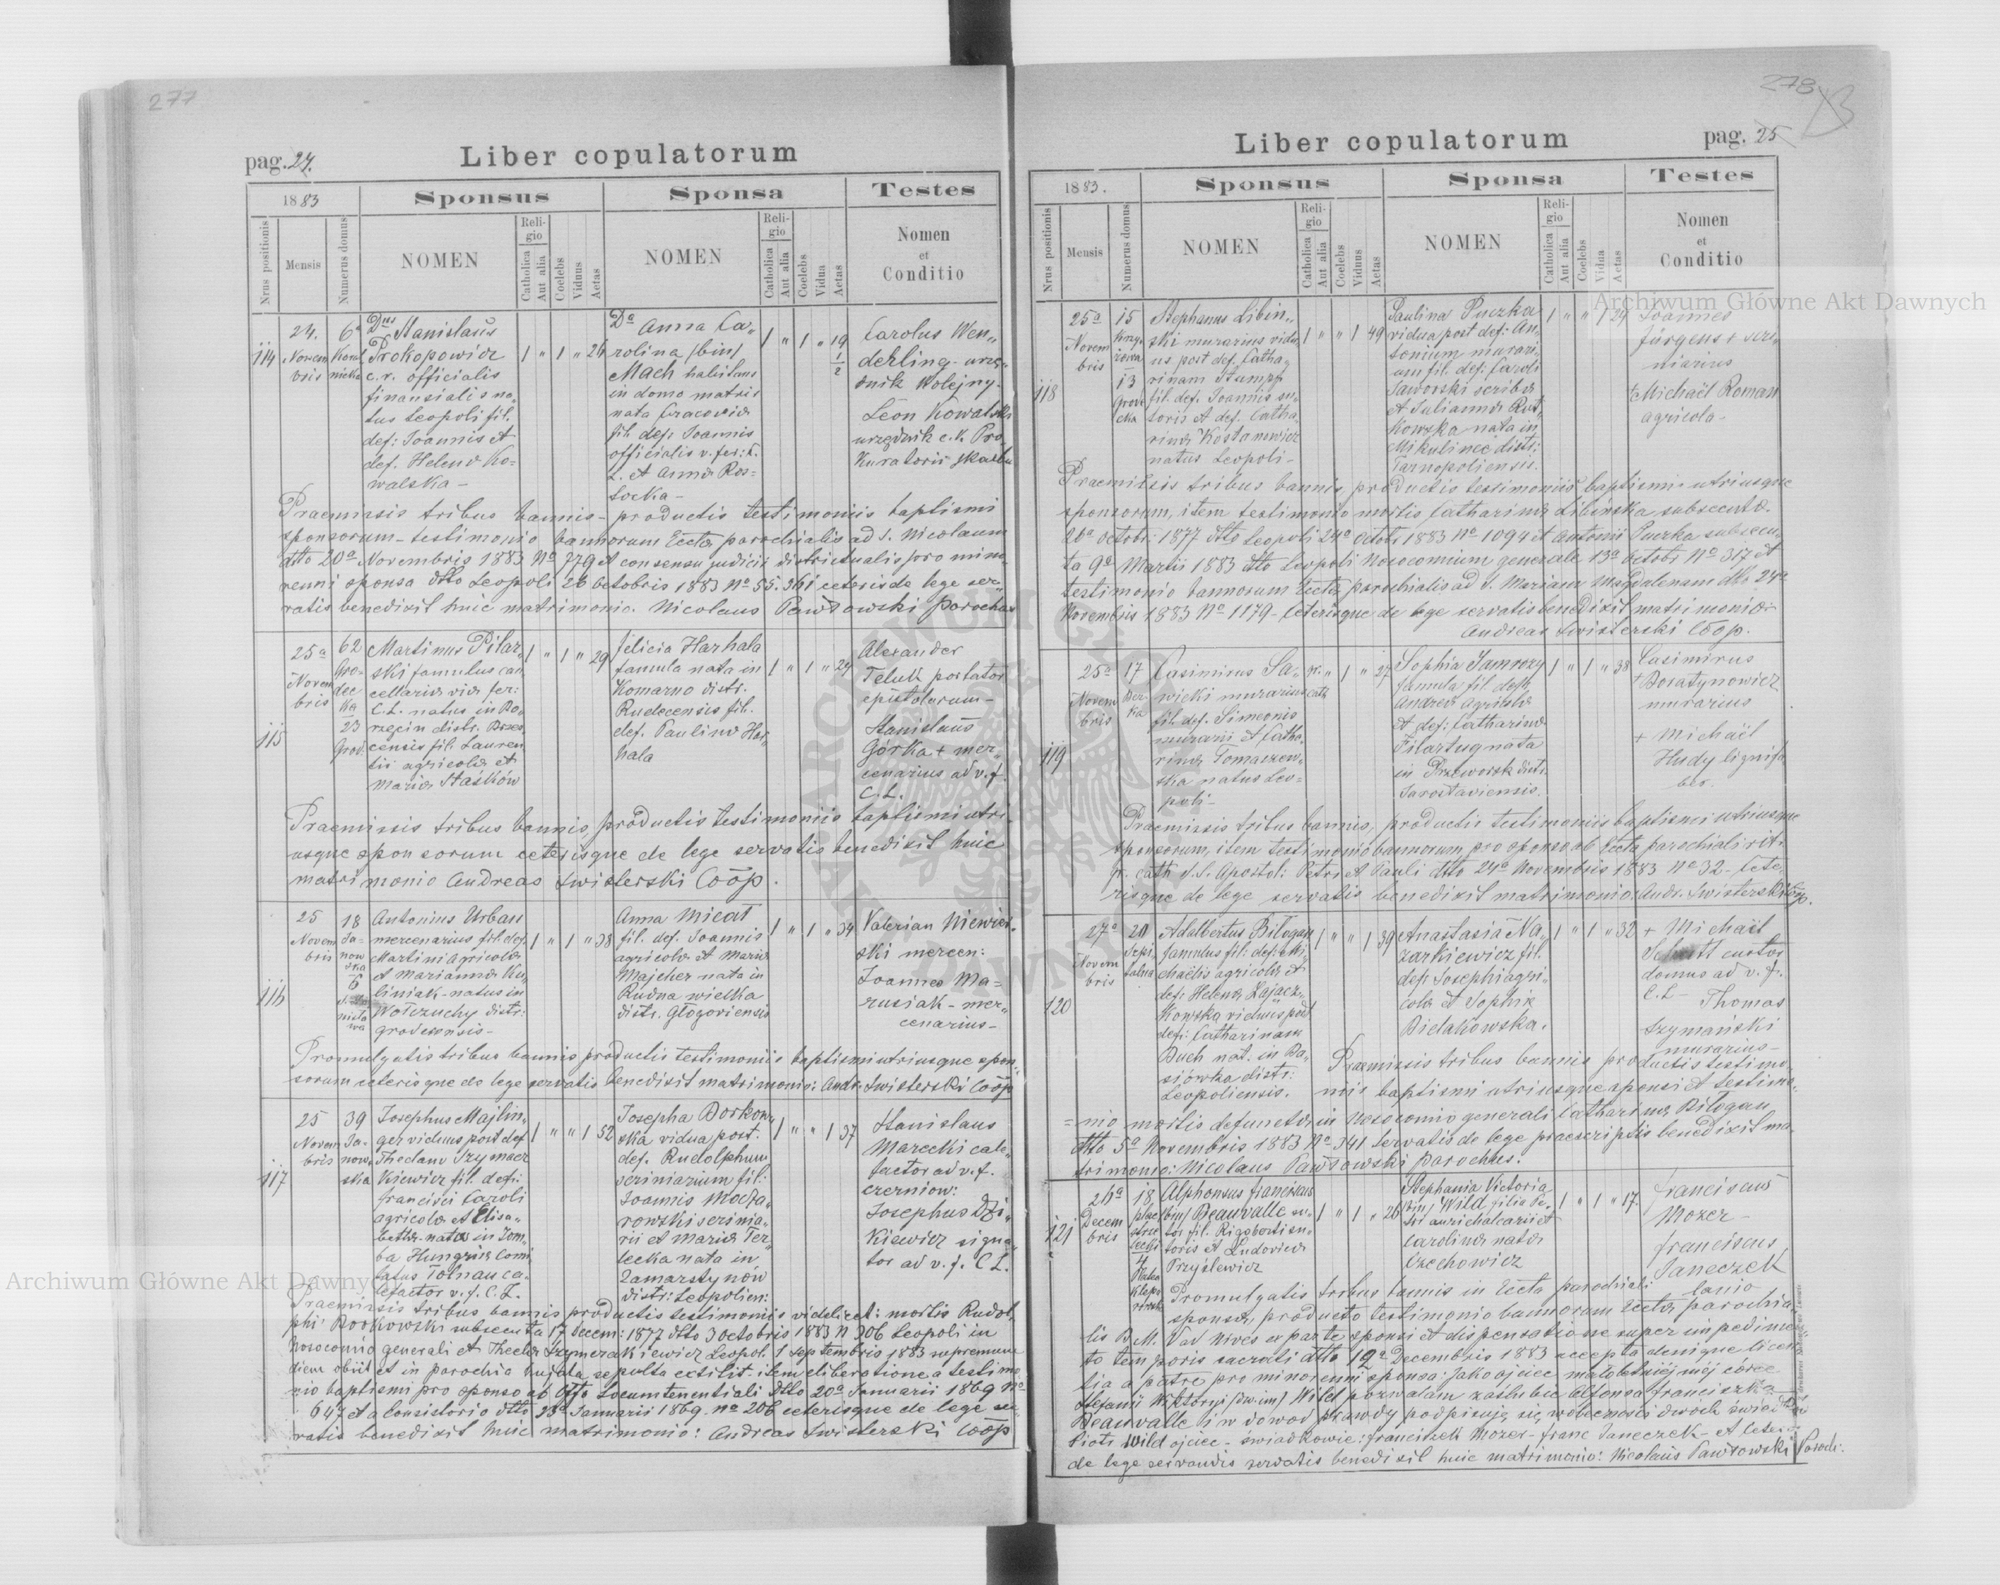 277
pag. 24.
Liber copulatorum
1883
Sponsus
Sponsa
Testes
Nrus positionis
Mensis
Numerus domus
NOMEN
Religio
Catholica
Aut alia
Coelebs
Viduus
Aetas
NOMEN
Religio
Catholica
Aut alia
Coelebs
Vidua
Aetas
Nomen
et
Conditio
114
24.
Novem
bris
Dnus Stanislaus
Prokopowicz
c. r. officialis
finansialis na-
tus Leopoli fil.
def: Joannis et
def. Helenae Ko-
walska -
1 " 1 " 26
Da Anna Ca-
rolina (bin)
Mach habitans
in domo matris
nata Cracoviae
fil. def: Joannis
officialis v. fer: C.
L. et Anna Ros-
locka -
1 " 1 " 19 1/2
Carolus Wen-
derling - urzę-
dnik kolejny -
Leon Kowalski
urzędnik c. k. Pro-
kuratorii skarbu
Praemissis tribus bannis - productis testimoniis baptismi
sponsorum - testimonio bannorum Ectae parochialis ad S. Nicolaum
dtto 20a Novembris 1883 No 779 et consensu judicii districtualis foro mino-
renni sponsa dtto Leopoli 26 octobris 1883 No 55.361 ceteris de lege ser-
vatis benedixit huic matrimonio. Nicolaus Pawłowski parochus
115
25a
Novem
bris
62
Gro-
dec
ka
23
Grod.
Martinus Pilar-
ski famulus can-
cellariae viae fer:
C. L. natus in Bo-
ręcin distr. Brzes-
censis fil. Lauren-
tii agricolae et
Maria Staśków
1 " 1 " 29
Felicia Harhala
famula nata in
Komarno distr.
Rudecensis fil.
def. Paulina Har-
hala
1 " 1 " 24
Alexander
Teluk portator
epistolarum -
Stanislaus
Górka + mer-
cenarius ad v. f.
C. L.
Praemissis tribus bannis, productis testimoniis baptismi utri-
usque sponsorum ceterisque de lege servatis benedixit huic
matrimonio Andreas Swisterski Coop.
116
25
Novem
bris
18
Ja-
now
ska
6
Antonius Urban
mercenarius fil. def.
Martini agricolae
et Mariannae Ku-
liniak - natus in
Wołczuchy distr:
grodecensis -
1 " 1 " 38
Anna Micał
fil. def. Joannis
agricolae et Maria
Majcher nata in
Rudna wielka
distr. Głogoviensis
1 " 1 " 34
Valerian Niewier-
ski mercen:
Joannes Ma-
rusiak - mer-
cenarius -
Promulgatis tribus bannis productis testimoniis baptismi utriusque spon-
sorum ceterisque de lege servatis benedixit matrimonio: Andr. Swisterski Coop
117
25
Novem
bris
39
Ja-
now-
ska
Josephus Majlin-
ger viduus post def
Theclam Szymacz
kiewicz fil. def:
Francisci Caroli
agricolae et Elisa-
betha - natus in Dom-
ba Hungria Comi
tatus Tolnau ca-
lefactor v. f. C. L.
1 " " 1 52
Josepha Borkow-
ska vidua post.
def. Rudolphum
scriniarium fil:
Joannis Moczą-
rowski scrinia-
rii et Maria Ter-
lecka nata in
Zamarstynów
distr: Leopolien:
1 " " 1 37
Stanislaus
Marecki cale-
factor ad v. f.
czerniow:
Josephus Dzi-
kiewicz signa-
tor ad v. f. C L.
Praemissis tribus bannis productis testimoniis videlicet: mortis Rudol-
phi Borkowski subsecuta 17 Decem: 1877 dtto 3 octobris 1883 N 306 Leopoli in
Nosocomio generali et Theclae Szymerakiewicz Leopol. 1 septembris 1883 supremum
diem obiit et in parochia hujate sepulta extitit - item deliberatione a testimo-
nio baptismi pro sponso ab Offo Locumtenentiali dtto 20a Januarii 1869 No
647 et a Consistorio dtto 23a Januarii 1869. No 206 ceterisque de lege ser-
vatis benedixit huic matrimonio: Andreas Swisterski Coop
278
pag. 25
Liber copulatorum
1883.
Sponsus
Sponsa
Testes
Nrus positionis
Mensis
Numerus domus
NOMEN
Religio
Catholica
Aut alia
Coelebs
Viduus
Aetas
NOMEN
Religio
Catholica
Aut alia
Coelebs
Vidua
Aetas
Nomen
et
Conditio
118
25a
Novem
bris
15
13
Grode
cka
Stephanus Libin-
ski murarius vidu-
us post def. Catha-
rinam Stumpf
fil. def. Joannis su-
toris et def. Catha-
rina Kostanowicz
natus Leopoli -
1 " " 1 49
Paulina Puczka
vidua post def: An-
tonium murari-
um fil. def: Caroli
Jaworski scriba
et Julianna Rut-
kowska nata in
Mikulince distr:
Tarnopoliensis.
1 " " 1 29
Joannes
Jürgens + scri-
niarius
+ Michaël Roman
agricola -
Praemissis tribus bannis, productis testimoniis baptismi utriusque
sponsorum, item testimonio mortis Catharina Libinska subsecuta.
octobr: 1877 dtto Leopoli 24a octobr 1883 No 1094 et Antonii Puczka subsecu-
ta 9a Martii 1883 dtto Leopoli Nosocomium generale 13a octobr No 317 et
testimonio bannorum Ectae parochialis ad S. Mariam Magdalenam dtto 24a
Novembris 1883 No 1179 - ceterisque de lege servatis benedixit matrimonio -
Andreas Swisterski Coop.
119
25a
Novem
bris
17
Casimirus Sa-
wicki murarius
fil. def. Simeonis
murarii et Catha-
rina Tomaszew-
ska natus Leo-
poli -
gr. cath " 1 " 27
Sophia Jamrozy
famula fil. def:
Andrea agricola
et def: Catharina
Filartug nata
in Przeworsk distr.
Jaroslaviensis.
1 " 1 " 38
Casimirus
+ Boratynowicz
murarius
+ Michaël
Hudy lignifa
ber.
Praemissis tribus bannis, productis testimoniis baptismi utriusque
sponsorum, item testimonio bannorum pro sponso ab Ecta parochiali rit:
gr. cath S. S. Apostol: Petri et Pauli dtto 24a Novembris 1883 No 32 - Cete-
risque de lege servatis benedixit matrimonio: Andr. Swisterski Coop.
120
27a
Novem
bris
20
Szpi
talna
Adalbertus Bilogan
famulus fil. def: Mi-
chaëlis agricola et
def: Helena Zającz-
kowska viduus post
def: Catharinam
Buch nat. in Ba-
siówka distr:
Leopoliensis.
1 " " 1 39
Anastasia Na-
zarkiewicz fil.
def: Josephi agri-
cola et Sophia
Bielakowska.
1 " 1 " 32
+ Michaël
Schmitt custos
domus ad v. f.
C. L
Thomas
Szymański
murarius -
Praemissis tribus bannis productis testimo-
niis baptismi utriusque sponsi et testimo-
= nio mortis defuncta in Nosocomio generali Catharina Bilogan
dtto 5a Novembris 1883 No 341 servatis de lege praescriptis benedixit ma-
trimonio: Nicolaus Pawłowski parochus.
121
26a
Decem
bris
18
4
Alphonsus Franciscus
(bin) Beauvalle su-
tor fil. Rigoberti su-
toris et Ludovica
Przyslewicz
1 " 1 " 26
Stephania Victoria
(bin) Wild, filia Pe-
tri aurichalcarii et
Carolina nata
Czechowicz
1 " 1 " 17.
Franciscus
Mozer -
Franciscus
Janeczek
lanio
Promulgatis tribus bannis in Ecta parochiali
sponsa, producto testimonio bannorum Ecta parochia-
lis B. M. Vad Nives ex parte sponsi et dispensatione super impedimen-
to temporis sacrati dtto 12a Decembris 1883 accepta denique licen
tia a patre pro minorenni sponsa: Jako ojciec małoletniéj méj córce
Stefanii Wiktoryi (dw. im) Wild pozwalam zaślubić Alfonsa Franciszka
Beauvalle i w dowod prawdy podpisuję się w obecności dwóch świadków
Piotr Wild ojciec - świadkowie: Franciszek Mozer - Franc Janeczek - et Ceteris
de lege servandis servatis benedixit huic matrimonio: Nicolaus Pawłowski Paroch.
Archiwum Główne Akt Dawnych
Archiwum Główne Akt Dawnych